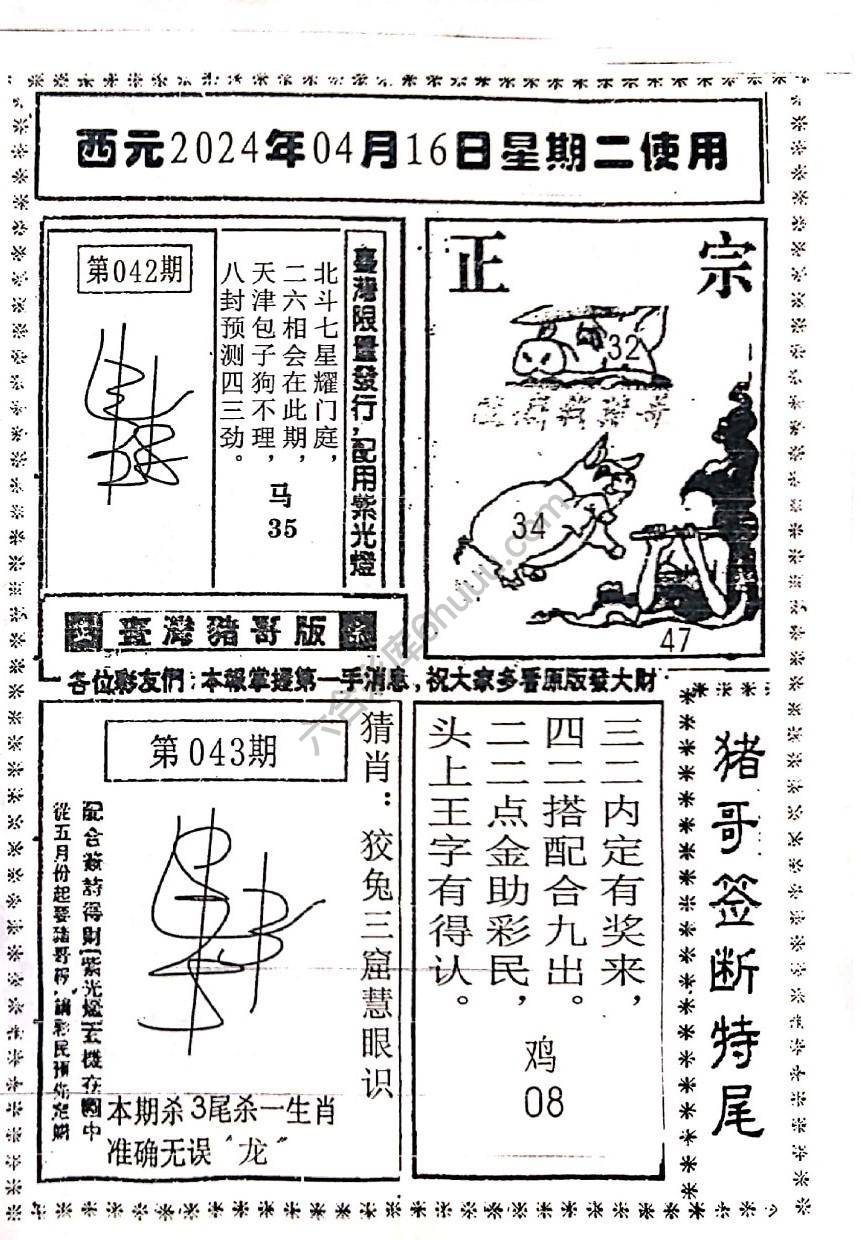 西元2024年04月16日星期二使用
第042期
臺灣限量發行，配用紫光燈
北斗七星耀门庭，
二六相会在此期，
天津包子狗不理，
八封预测四三劲。
马
35
正宗
32
34
47
臺灣豬哥版
各位彩友們：本報掌握第一手消息，祝大家多看原版發大財
第043期
猜肖：狡兔三窟慧眼识
從五月份起要豬哥報，請彩民預先定購
本期杀3尾杀一生肖
准确无误〝龙〞
三二内定有奖来，
四二搭配合九出。
二二点金助彩民，
头上王字有得认。
鸡
08
猪哥签断特尾